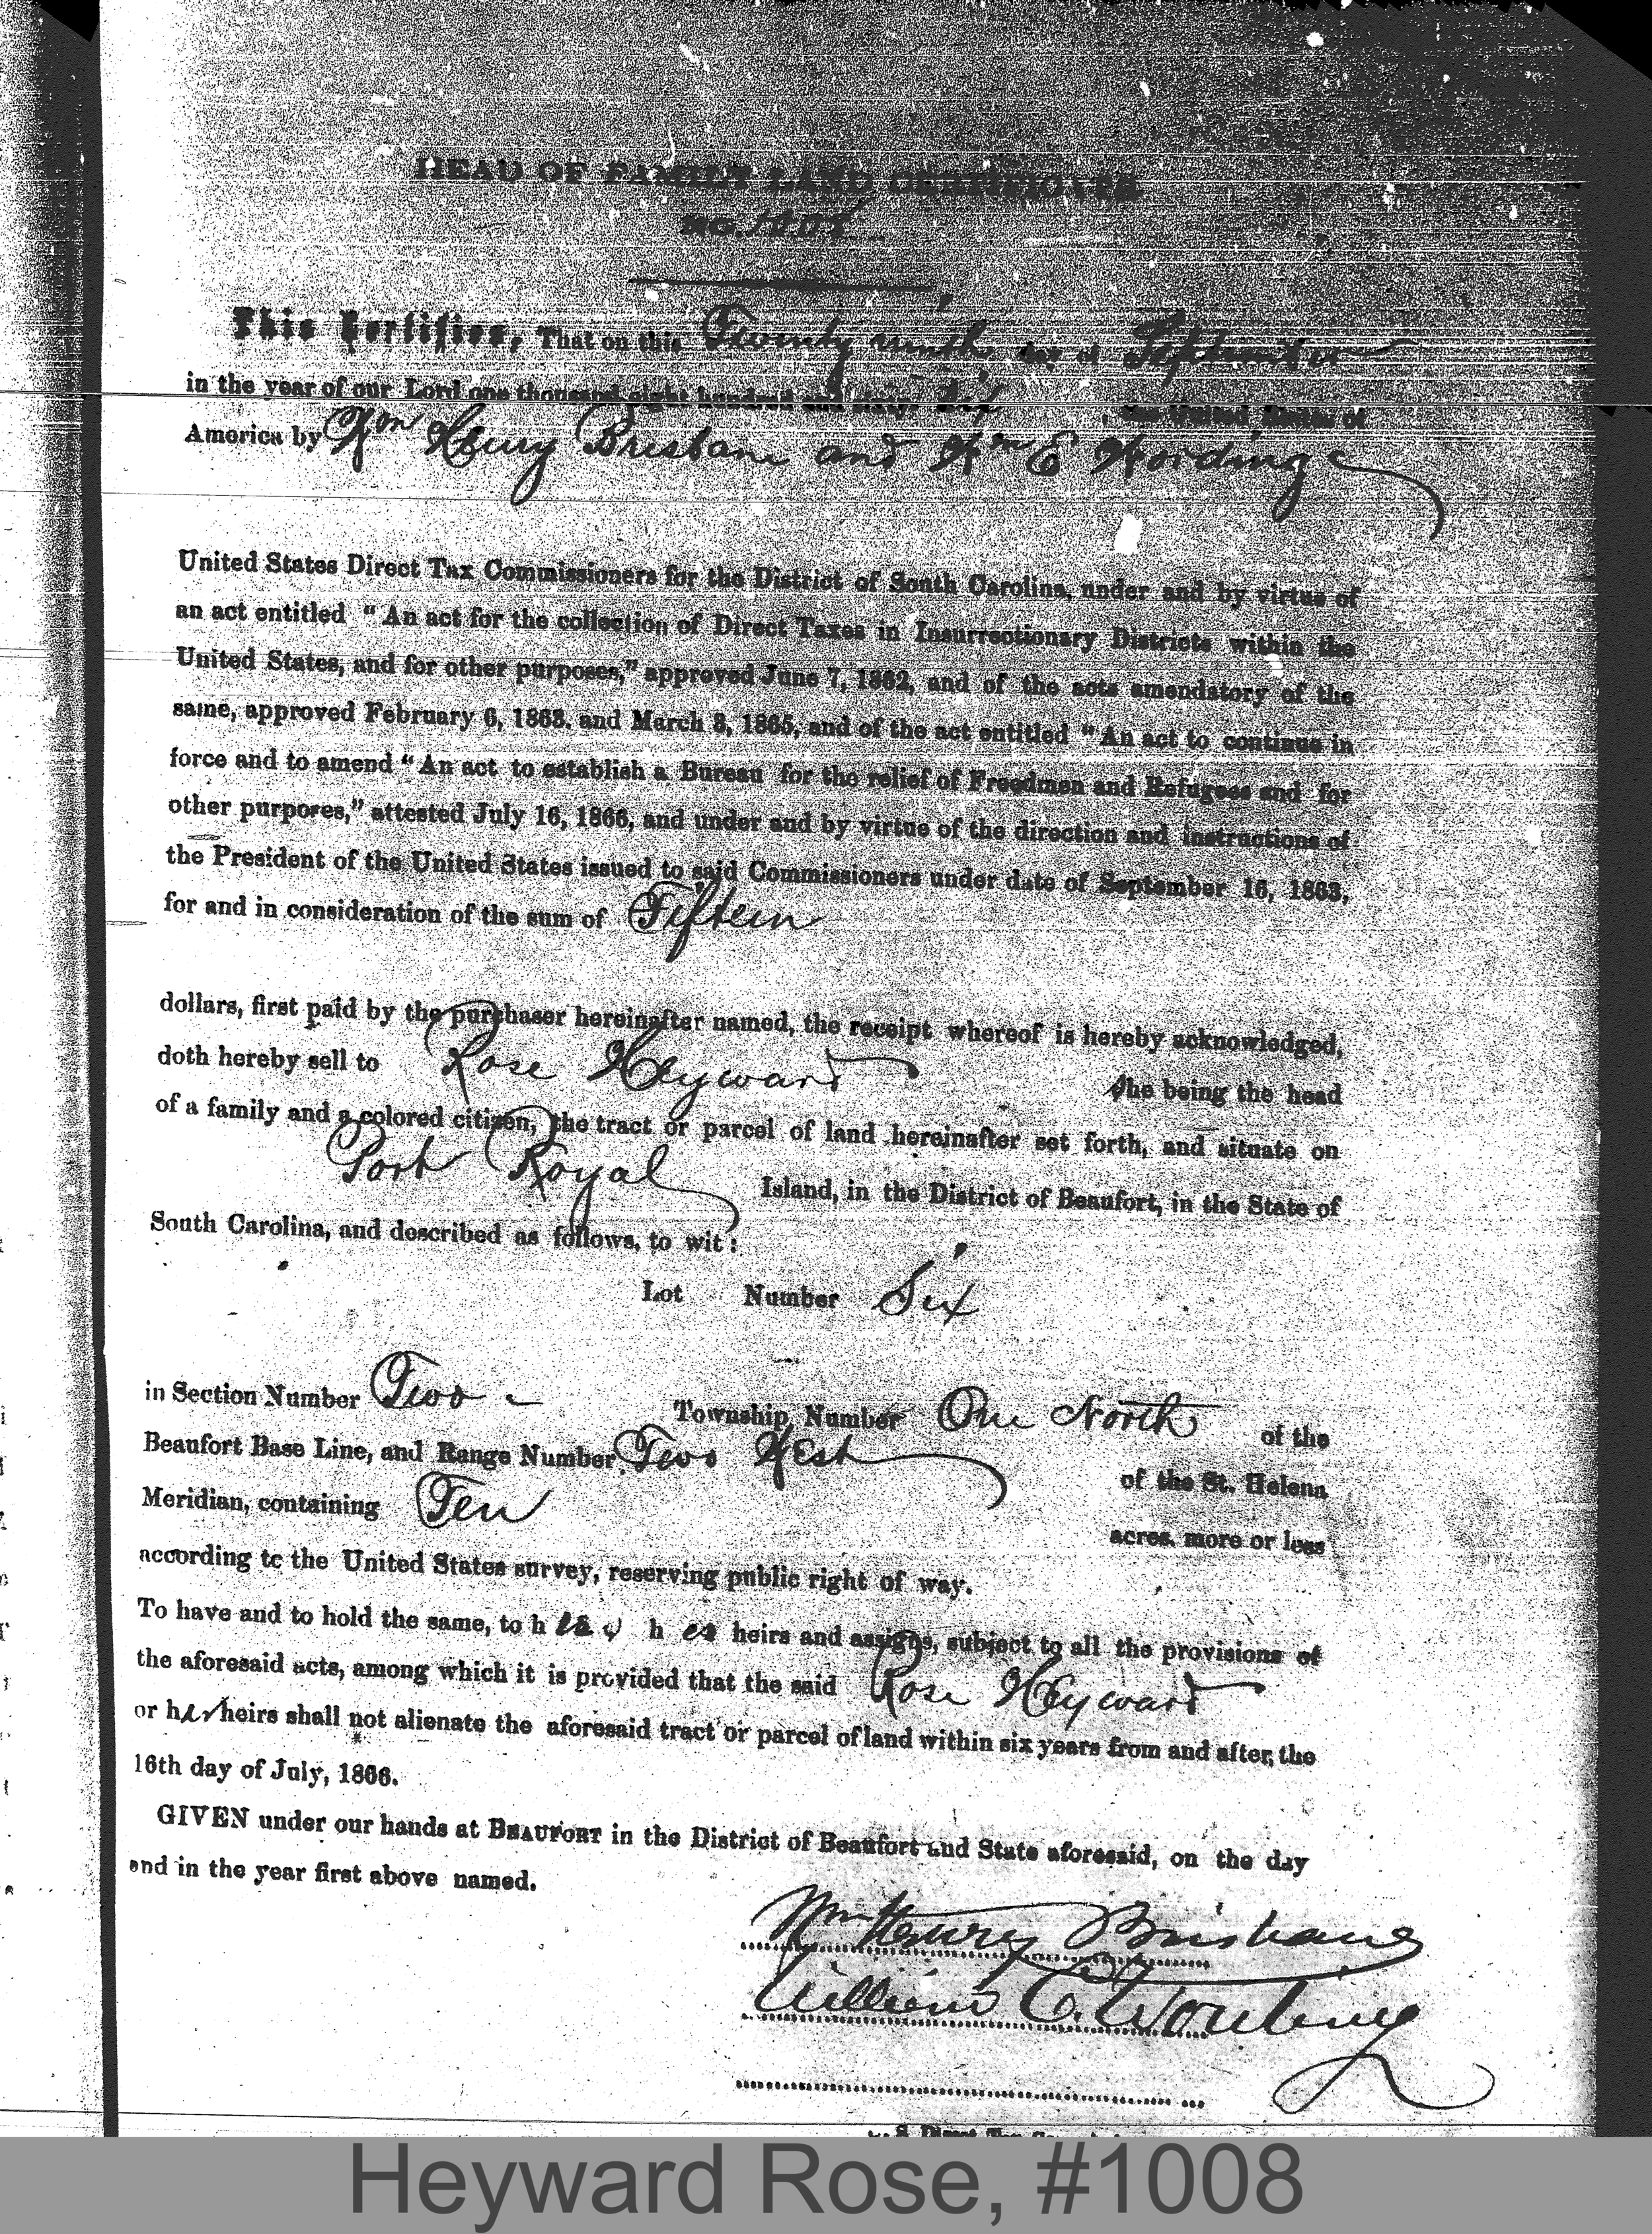 HEAD OF FAMILY LAND CERTIFICATE
NO. 1008
This Certifies, That on this Twenty ninth day of September
in the year of our Lord one thousand eight hundred and sixty six, the United States of
America by Wm Henry Brisbane and Wm E Wording
United States Direct Tax Commissioners for the District of South Carolina, under and by virtue of
an act entitled “An act for the collection of Direct Taxes in Insurrectionary Districts within the
United States, and for other purposes,” approved June 7, 1862, and of the acts amendatory of the
same, approved February 6, 1863, and March 3, 1865, and of the act entitled “An act to continue in
force and to amend “An act to establish a Bureau for the relief of Freedmen and Refugees and for
other purposes,” attested July 16, 1866, and under and by virtue of the direction and instructions of
the President of the United States issued to said Commissioners under date of September 16, 1863,
for and in consideration of the sum of Fifteen
dollars, first paid by the purchaser hereinafter named, the receipt whereof is hereby acknowledged,
doth hereby sell to Rose Heyward she being the head
of a family and a colored citizen, the tract or parcel of land hereinafter set forth, and situate on
Port Royal Island, in the District of Beaufort, in the State of
South Carolina, and described as follows, to wit:
Lot Number Six
in Section Number Two Township Number One North of the
Beaufort Base Line, and Range Number Two West of the St. Helena
Meridian, containing Ten acres, more or less
according to the United States survey, reserving public right of way.
To have and to hold the same, to h h er heirs and assigns, subject to all the provisions of
the aforesaid acts, among which it is provided that the said Rose Heyward
or her heirs shall not alienate the aforesaid tract or parcel of land within six years from and after, the
16th day of July, 1866.
GIVEN under our hands at BEAUFORT in the District of Beaufort and State aforesaid, on the day
and in the year first above named.
Wm Henry Brisbane
William E. Wording
U. S. Direct Tax
Heyward Rose, #1008